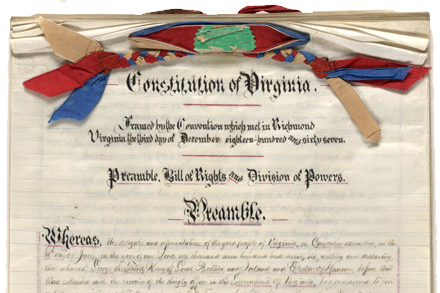 Constitution of Virginia.
Framed by the Convention which met in Richmond
Virginia the third day of December eighteen-hundred and sixty seven.
Preamble, Bill of Rights and Division of Powers.
Preamble.
Whereas, the delegates and representatives of the good people of Virginia, in Convention assembled, on the
day of June, in the year of our Lord, one thousand seven hundred and seventy six, reciting and declaring
that whereas George the Third King of Great Britain and Ireland and Elector of Hanover, before that
time intrusted with the exercise of the kingly office in the Government of Virginia